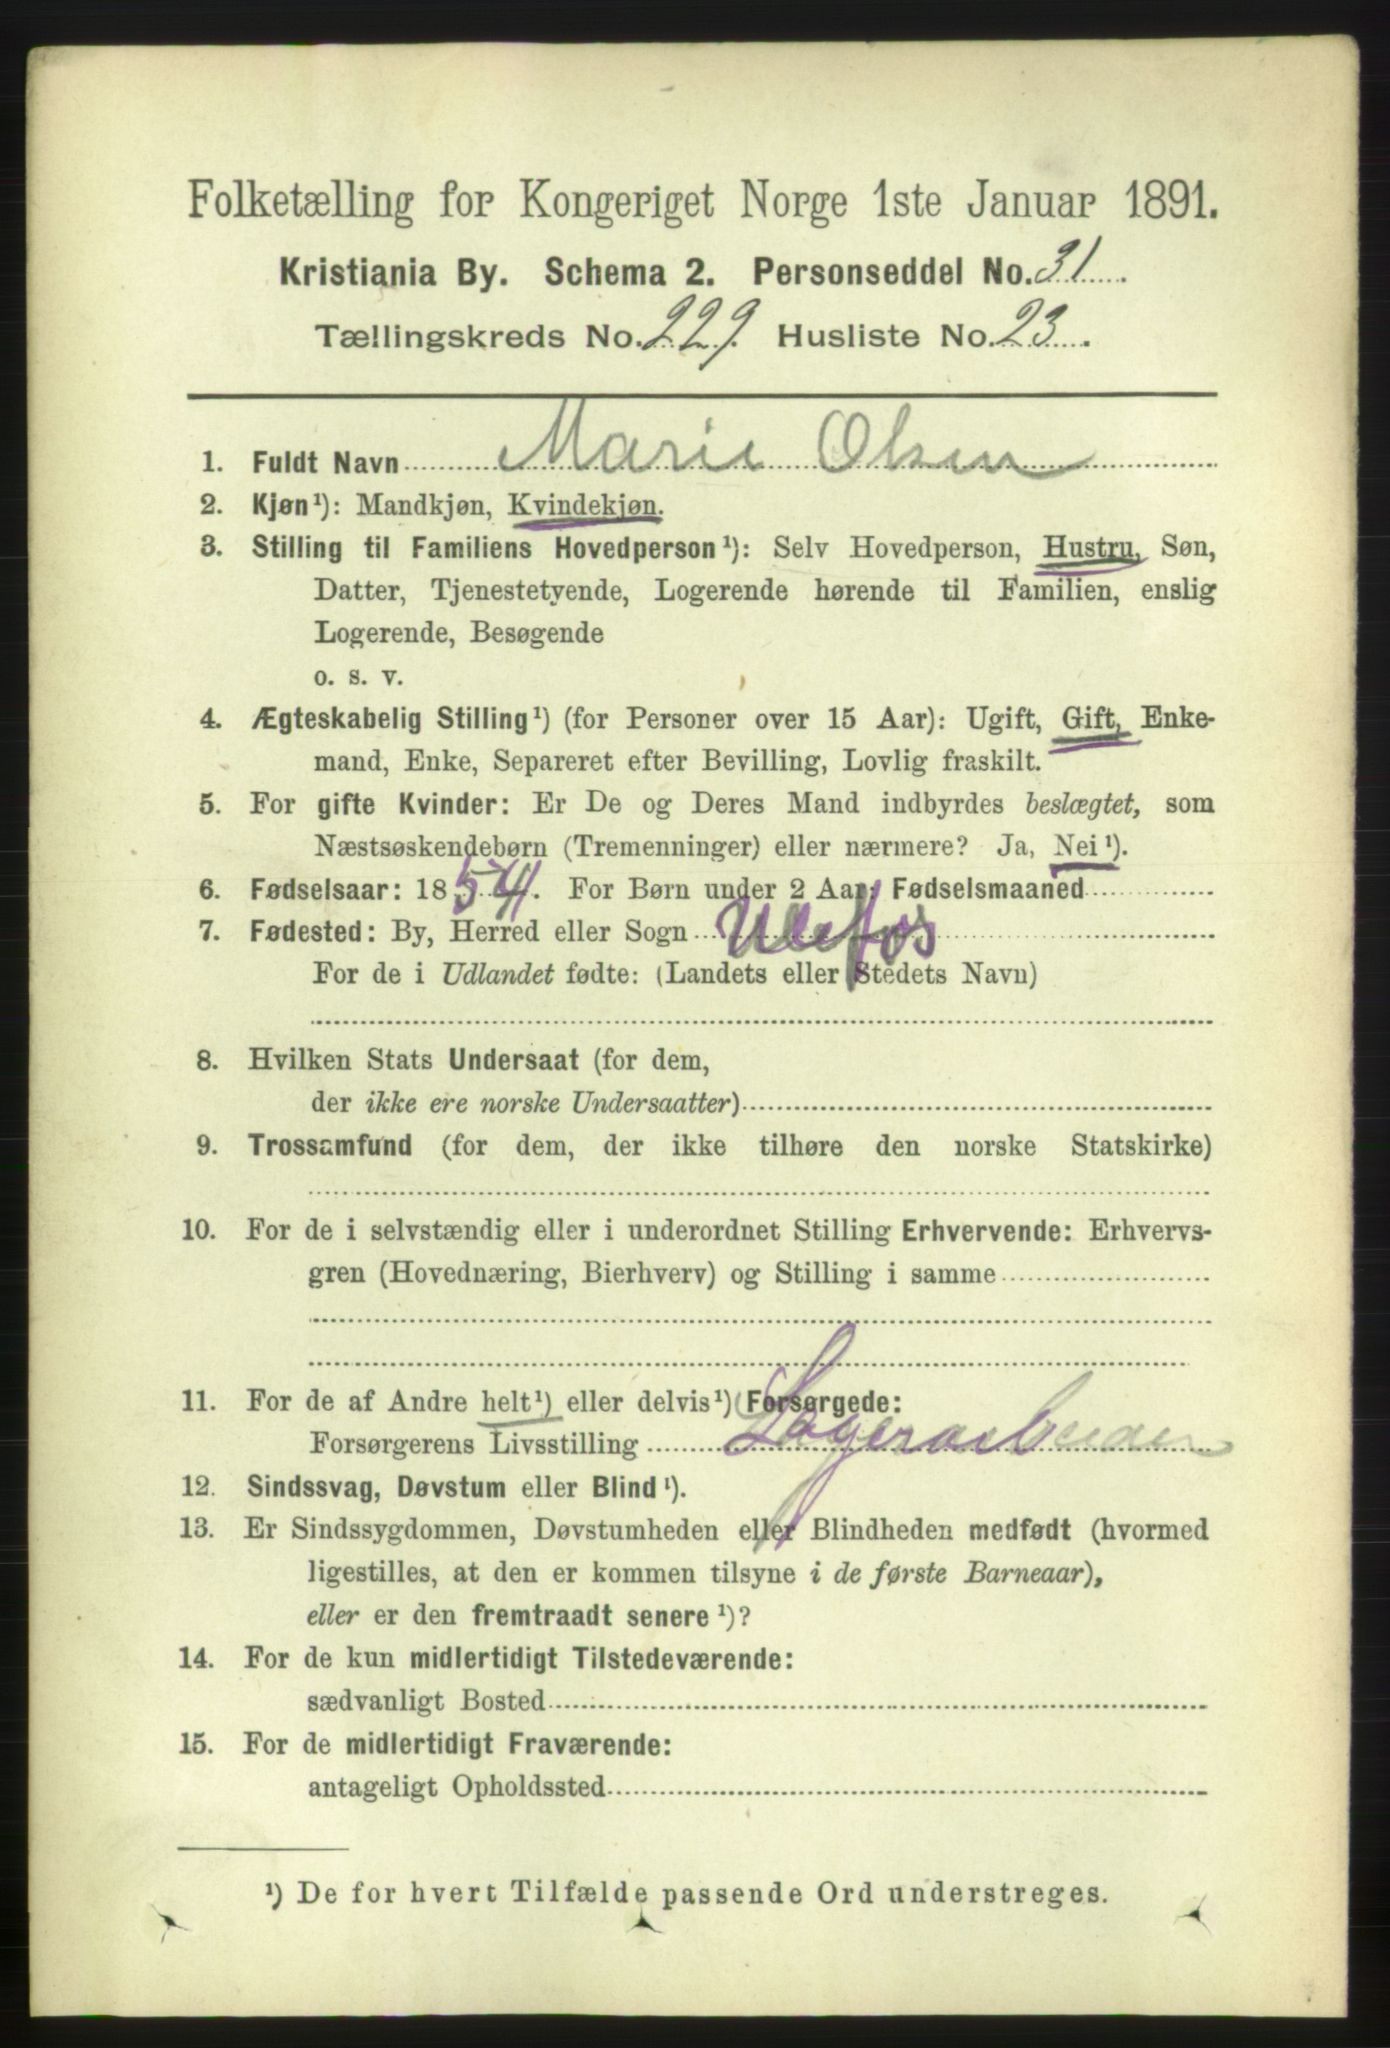 Folketælling for Kongeriget Norge 1ste Januar 1891.
Kristiania By. Schema 2. Personseddel No. 31
Tællingskreds No. 229. Husliste No. 23.
1. Fuldt Navn Marie Olsen
2. Kjøn¹): Mandkjøn, Kvindekjøn.
3. Stilling til Familiens Hovedperson¹): Selv Hovedperson, Hustru, Søn,
Datter, Tjenestetyende, Logerende hørende til Familien, enslig
Logerende, Besøgende
o. s. v.
4. Ægteskabelig Stilling¹) (for Personer over 15 Aar): Ugift, Gift, Enke-
mand, Enke, Separeret efter Bevilling, Lovlig fraskilt.
5. For gifte Kvinder: Er De og Deres Mand indbyrdes beslægtet, som
Næstsøskendebørn (Tremenninger) eller nærmere? Ja, Nei¹).
6. Fødselsaar: 1854. For Børn under 2 Aar: Fødselsmaaned
7. Fødested: By, Herred eller Sogn Ulefos
For de i Udlandet fødte: (Landets eller Stedets Navn)
8. Hvilken Stats Undersaat (for dem,
der ikke ere norske Undersaatter)
9. Trossamfund (for dem, der ikke tilhøre den norske Statskirke)
10. For de i selvstændig eller i underordnet Stilling Erhvervende: Erhvervs-
gren (Hovednæring, Bierhverv) og Stilling i samme
11. For de af Andre helt¹) eller delvis¹) Forsørgede:
Forsørgerens Livsstilling Lagerarbeider
12. Sindssvag, Døvstum eller Blind¹).
13. Er Sindssygdommen, Døvstumheden eller Blindheden medfødt (hvormed
ligestilles, at den er kommen tilsyne i de første Barneaar),
eller er den fremtraadt senere¹)?
14. For de kun midlertidigt Tilstedeværende:
sædvanligt Bosted
15. For de midlertidigt Fraværende:
antageligt Opholdssted
¹) De for hvert Tilfælde passende Ord understreges.